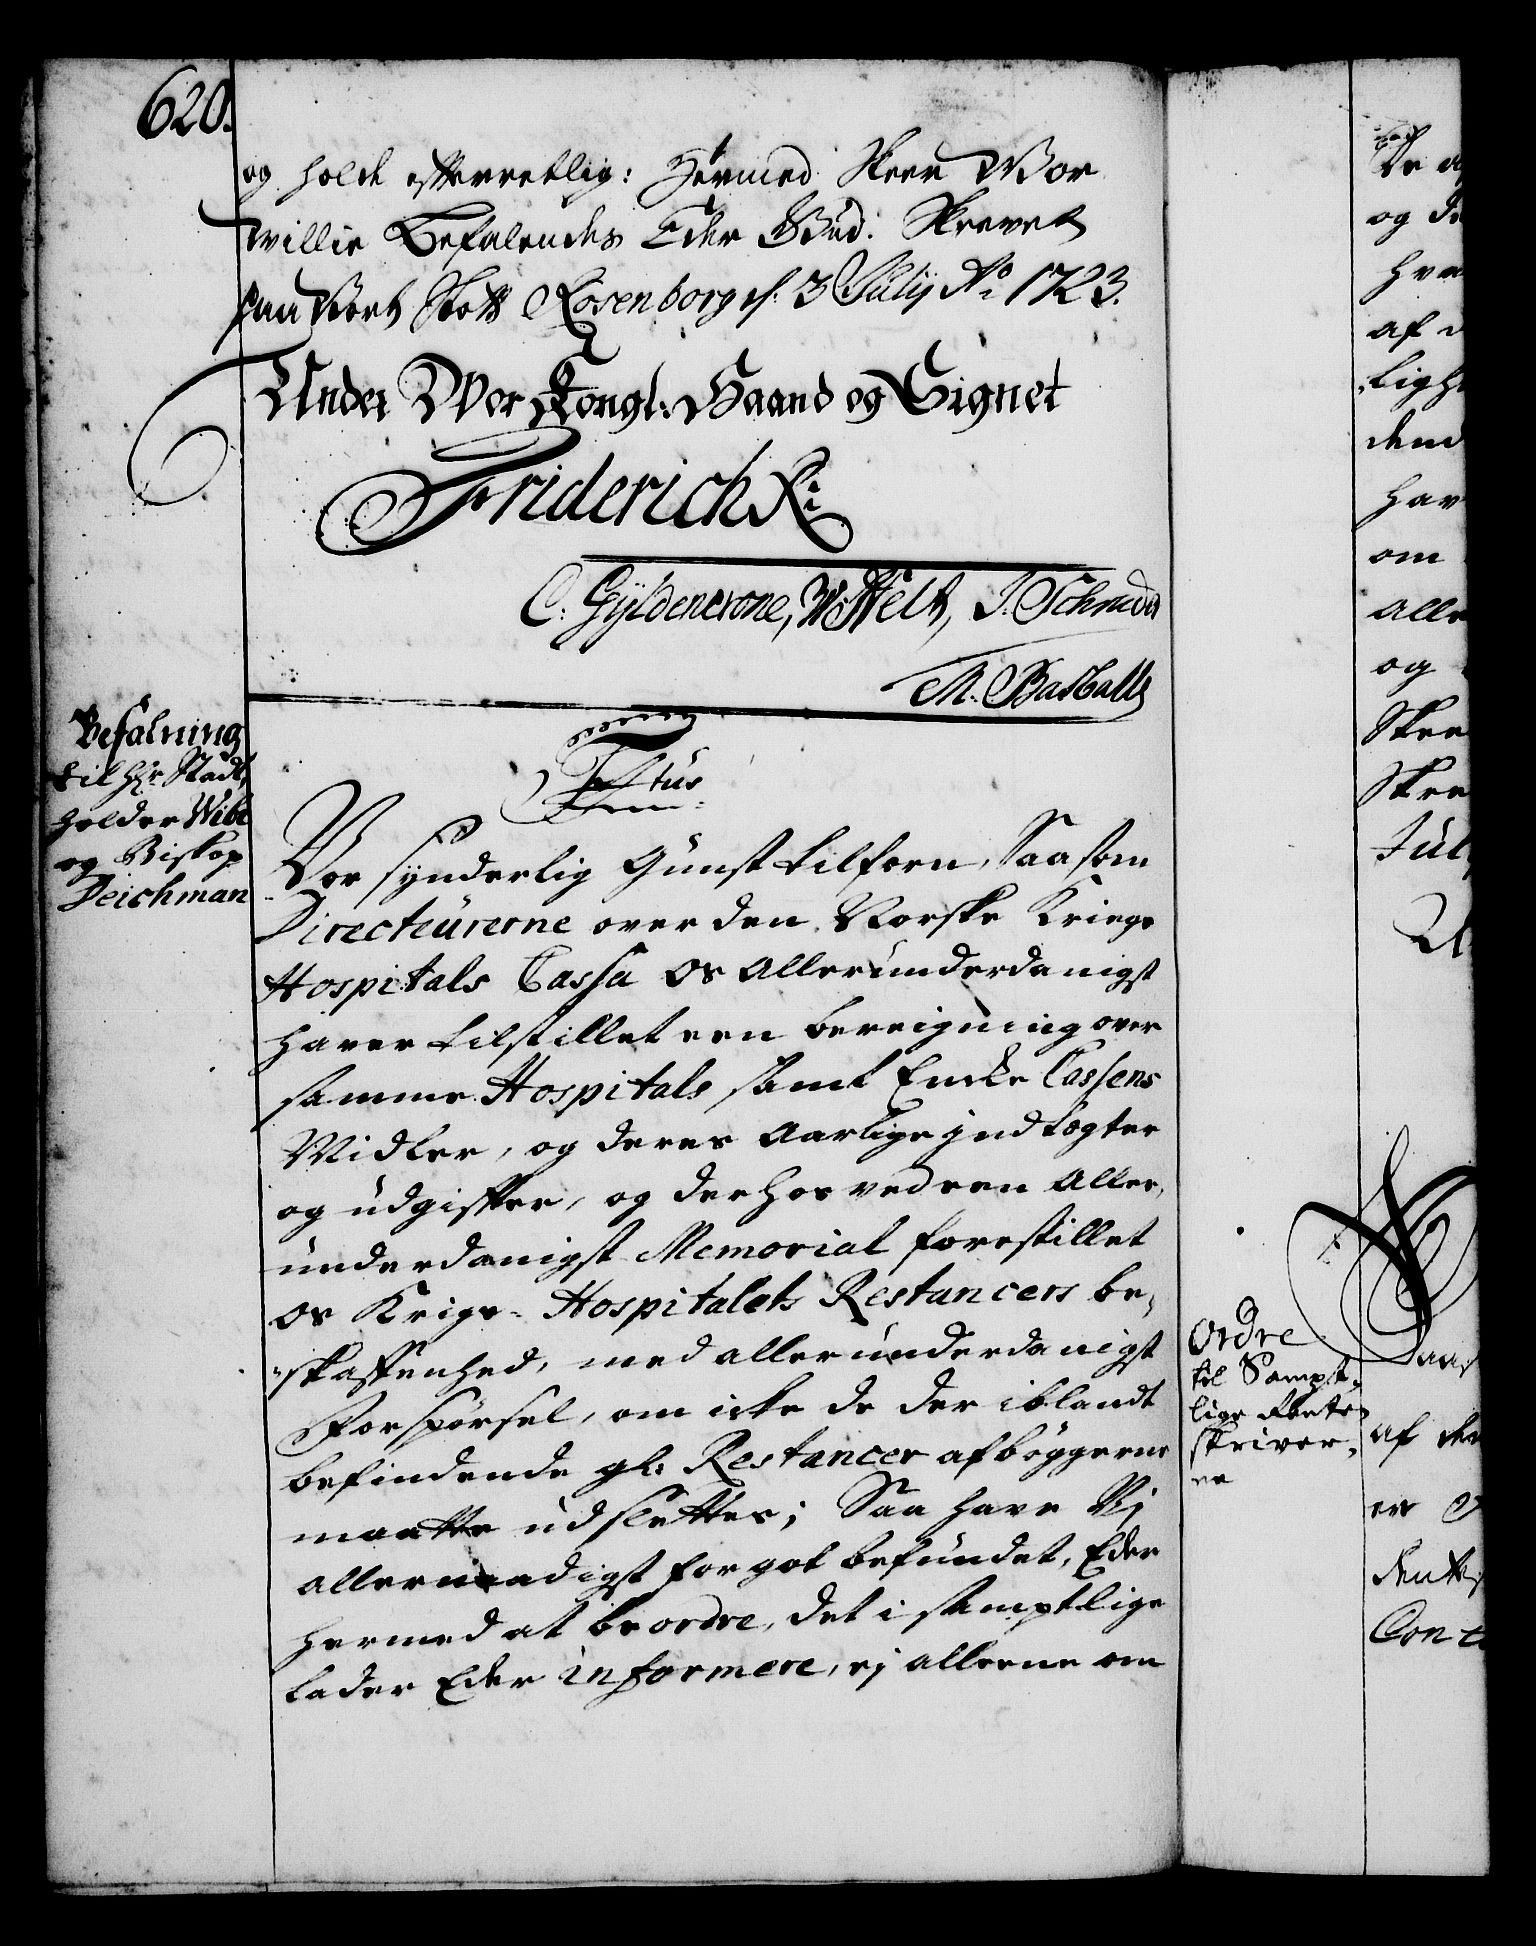 620.
og holde efterretlig: Hermed Skeer Vor
Villie Befalendes Eder Gud. Skrevet
paa Vort Slott Rosenborg d. 3 Julij Ao 1723.
Under Vor Kongl: Haand og Signet
Friderich R
C. Gyldencrone, W. Welt, J. Schrøder
M. Basballe
Befalning
til Hr. Stadt,
holder Wibe
og Biskop
Deichman
Vor synderlig Gunst tilforn, Saasom
Directeurerne over den Norske Kriegs
Hospitals Cassa os Allerunderdanigst
haver tilstillet een bereigning over
samme Hospitals samt Encke Cassens
Midler, og deres Aarlige jndtægter
og udgifter, og derhos ved een Aller,
underdanigst Memorial forestillet
os Krigs-Hospitalets Restancers be,
skaffenhed, med allerunderdanigst
Forspørsel, om icke de der iblandt
befindende gl: Restancer af bøggerne
maatte udslettes; Saa have Vj
allernaadigst for got befundet, Eder
hermed at beordre, det i samptlige
lader Eder informere, ej alleene om
Ordre
til Sampt,
lige Rente
skriver,
ne
og
hva
af
lighe
dend
hav
om
alle
og
Skee
Skre
Jul
Saas
af den
er
Con